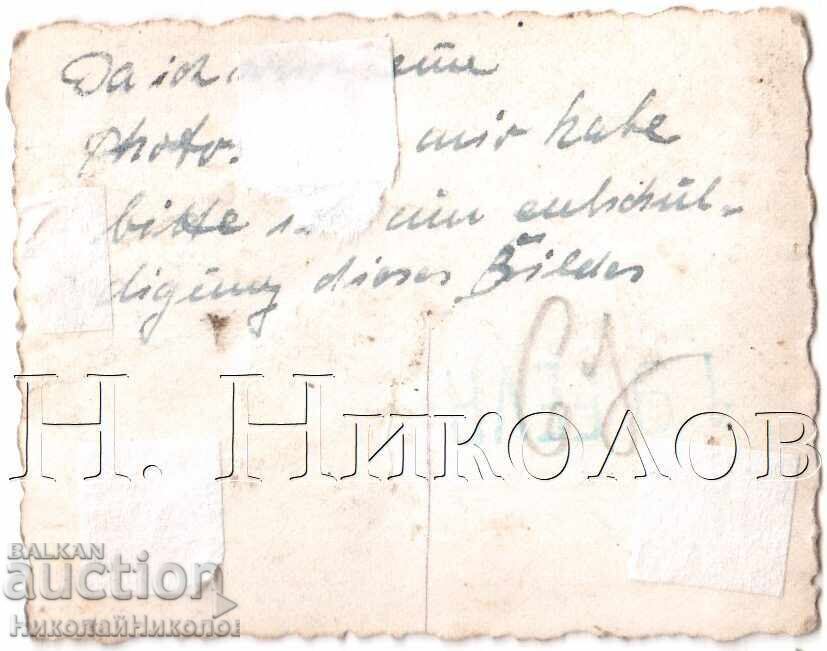 Da ich
photo. mir habe
bitte um entschul-
digung dieses Bildes
Н. Николов
BALKAN
auction
НиколайНиколов